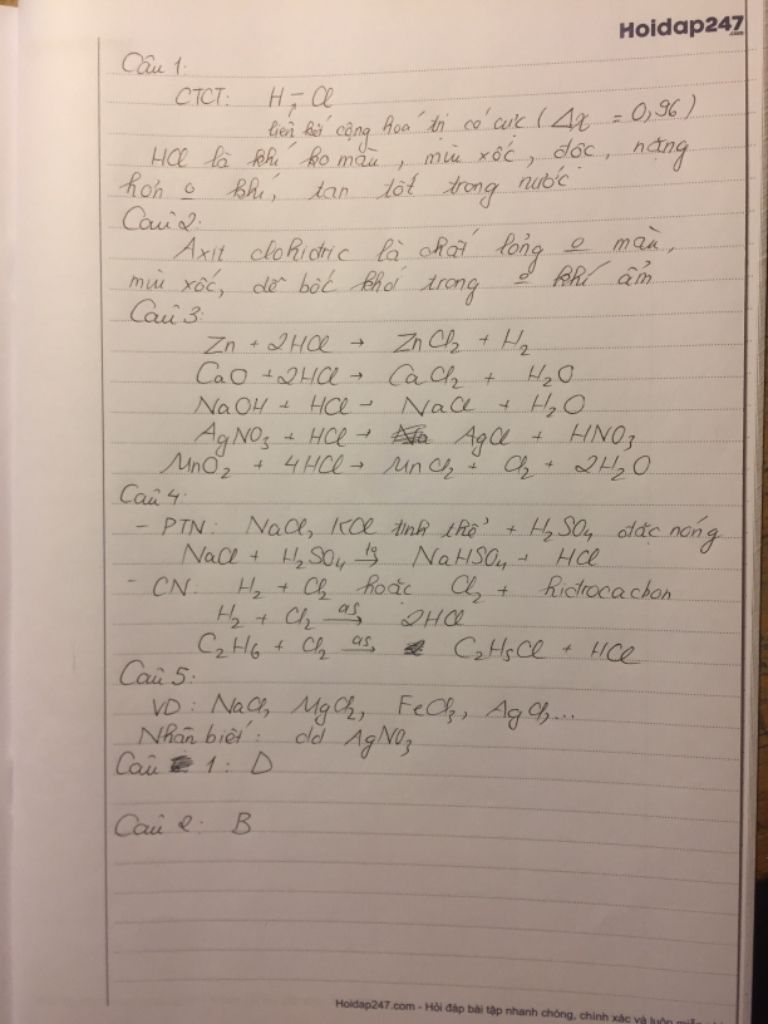 Hoidap247
.com
Câu 1:
CTCT: H - Cl
liên kết cộng hoá trị có cực (Δχ = 0,96)
HCl là khí ko màu, mùi xốc, độc, nặng
hơn o khí, tan tốt trong nước
Câu 2:
Axit clohidric là chất lỏng o màu,
mùi xốc, dễ bốc khói trong o khí ẩm
Câu 3:
Zn + 2HCl → ZnCl2 + H2
CaO + 2HCl → CaCl2 + H2O
NaOH + HCl → NaCl + H2O
AgNO3 + HCl → AgCl + HNO3
MnO2 + 4HCl → MnCl2 + Cl2 + 2H2O
Câu 4:
- PTN: NaCl, KCl tinh thể + H2SO4 đặc nóng
NaCl + H2SO4 →to NaHSO4 + HCl
- CN: H2 + Cl2 hoặc Cl2 + hidrocacbon
H2 + Cl2 →as 2HCl
C2H6 + Cl2 →as C2H5Cl + HCl
Câu 5:
VD: NaCl, MgCl2, FeCl3, AgCl,...
Nhận biết: dd AgNO3
Câu 1: D
Câu 2: B
Hoidap247.com - Hỏi đáp bài tập nhanh chóng, chính xác và luôn miễn